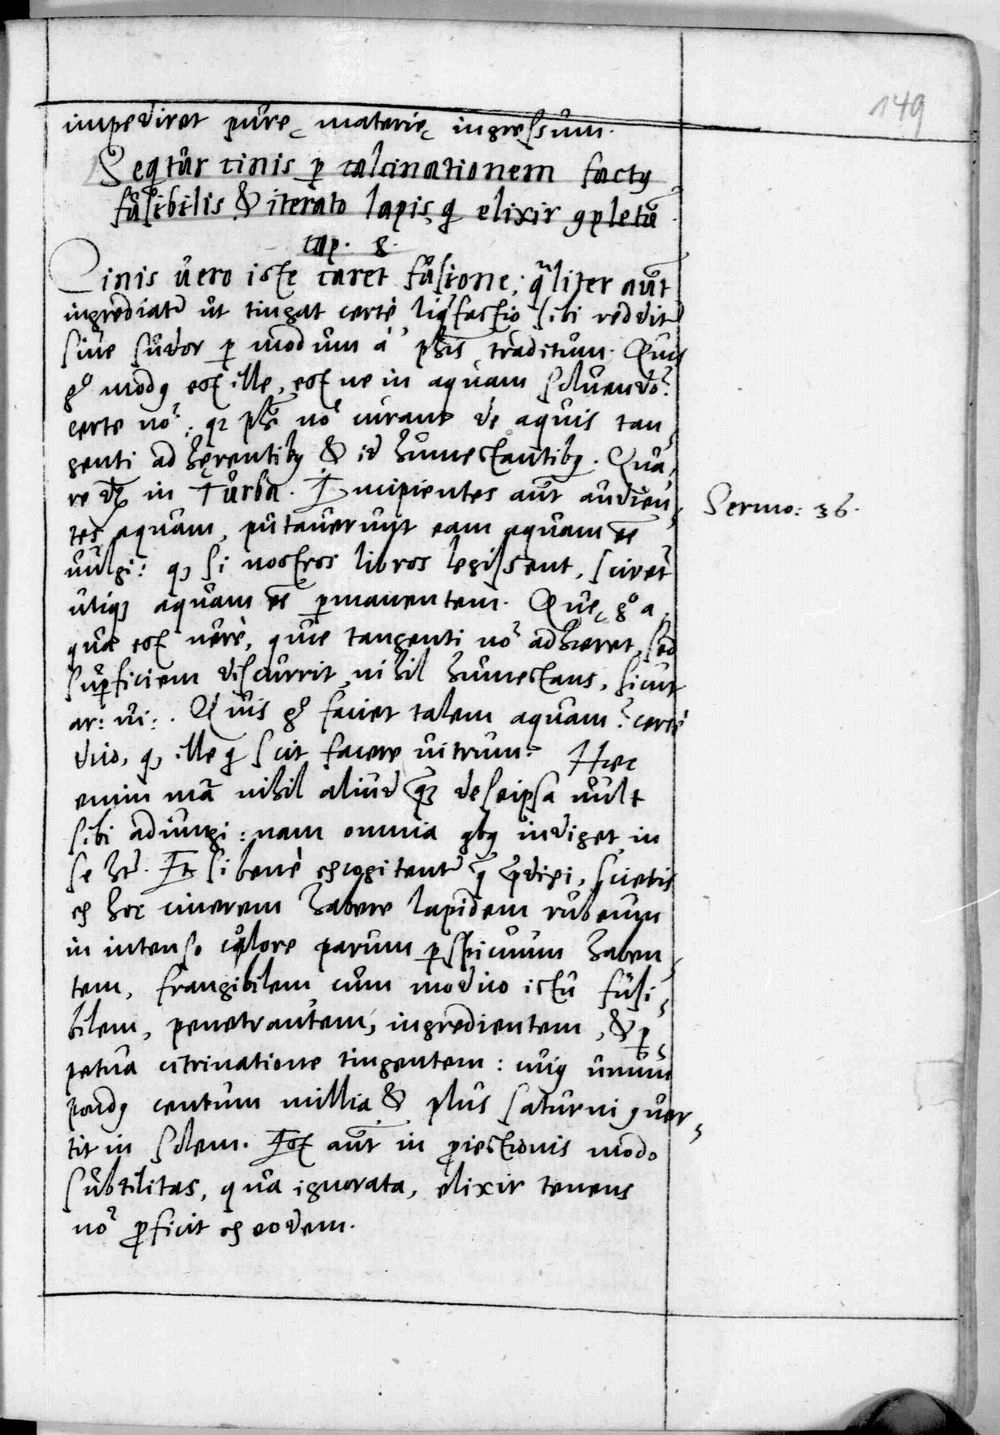 149
impediret purę materię ingressum.
Seqtur cinis p calcinationem factꝰ
fusibilis & iterato lapis, q elixir ꝯpletū
cap. 8.
Cinis vero iste caret fusione: qliter aūt
ingrediatr ut tingat certè liqfactio sibi redditr
sive sudor p modum à phis traditum. Quis
gͦ modꝰ est ille, est ne in aquam solvendo?
certe nō: qꝫ phi nō curant de aquis tan
genti adhęrentibꝰ & id humectantibꝰ. Qua,
re dr in Turba. Incipientes aūt audien,
tes aquam, putaverunt eam aquam eē
vulgi: qꝫ si nostros libros legissent, scirēt
utiqꝫ aquam eē pmanentem. Quę gͦ a,
qua est verè, quae tangenti nō adhaeret, sed
supficiem discurrit nihil humectans, sicut
ar: vi:. Quis gͦ faciet talem aquam? certè
dico, qꝫ ille q scit facere vitrum. Haec
enim mā nihil aliud qꝫ de seipsa vult
sibi adiungi: nam omnia qbꝰ indiget, in
se hꝫ. Et si benè excogitentr q pdixi, scietis
ex hoc cinerem habere lapidem rubeum
in intenso colore parum pspicuum haben,
tem, frangibilem cum modico ictu fusi,
bilem, penetrantem, ingredientem, & p
petua citrinatione tingentem: cuiꝰ unum
pondꝰ centum millia & plus saturni ꝯver,
tit in solem. Est aūt in piectionis modo
subtilitas, qua ignorata, elixir tenens
nō pficit ex eodem.
Sermo: 36.